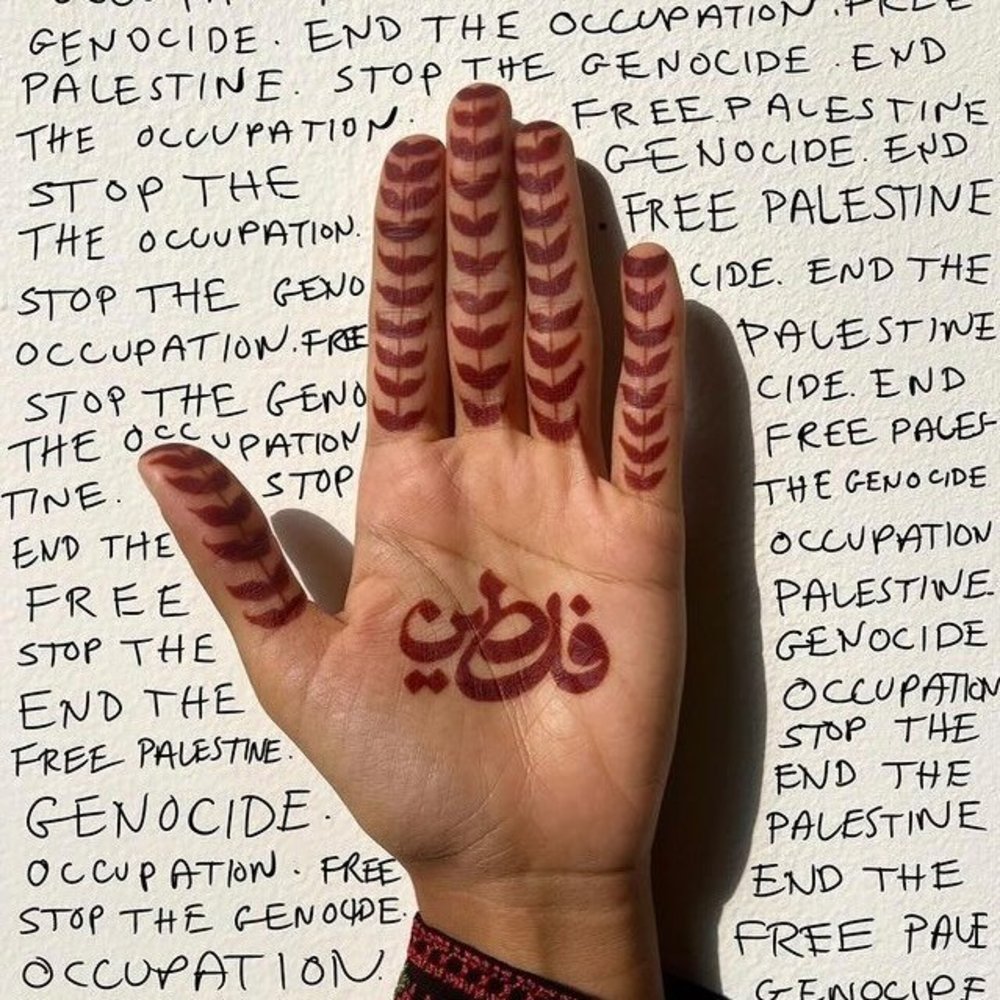 GENOCIDE. END THE OCCUPATION. FREE
PALESTINE. STOP THE GENOCIDE. END
THE OCCUPATION. FREE PALESTINE
STOP THE GENOCIDE. END
THE OCCUPATION. FREE PALESTINE
STOP THE GENO CIDE. END THE
OCCUPATION. FREE PALESTINE
STOP THE GENO CIDE. END
THE OCCUPATION FREE PALES
TINE. STOP THE GENOCIDE
END THE OCCUPATION
FREE PALESTINE.
STOP THE GENOCIDE
فلسطين
END THE OCCUPATION
FREE PALESTINE. STOP THE
GENOCIDE. END THE
PALESTINE
OCCUPATION. FREE
STOP THE GENOCIDE. END THE
OCCUPATION. FREE PALE
GENOCIDE